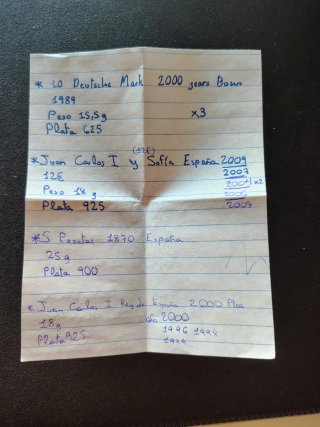 * 10 Deutsche Mark 2000 years Bonn
1989
Peso 15,5g x3
Plata 625
(12€)
* Juan Carlos I y Sofía España 2009
12€ 2007
Peso 18 g 2004 x2
Plata 925 2008
*5 Pesetas 1870 España
25g
Plata 900
* Juan Carlos I Rey de España 2000 Ptas
18g 2000
Plata 925 1996 1998
1999